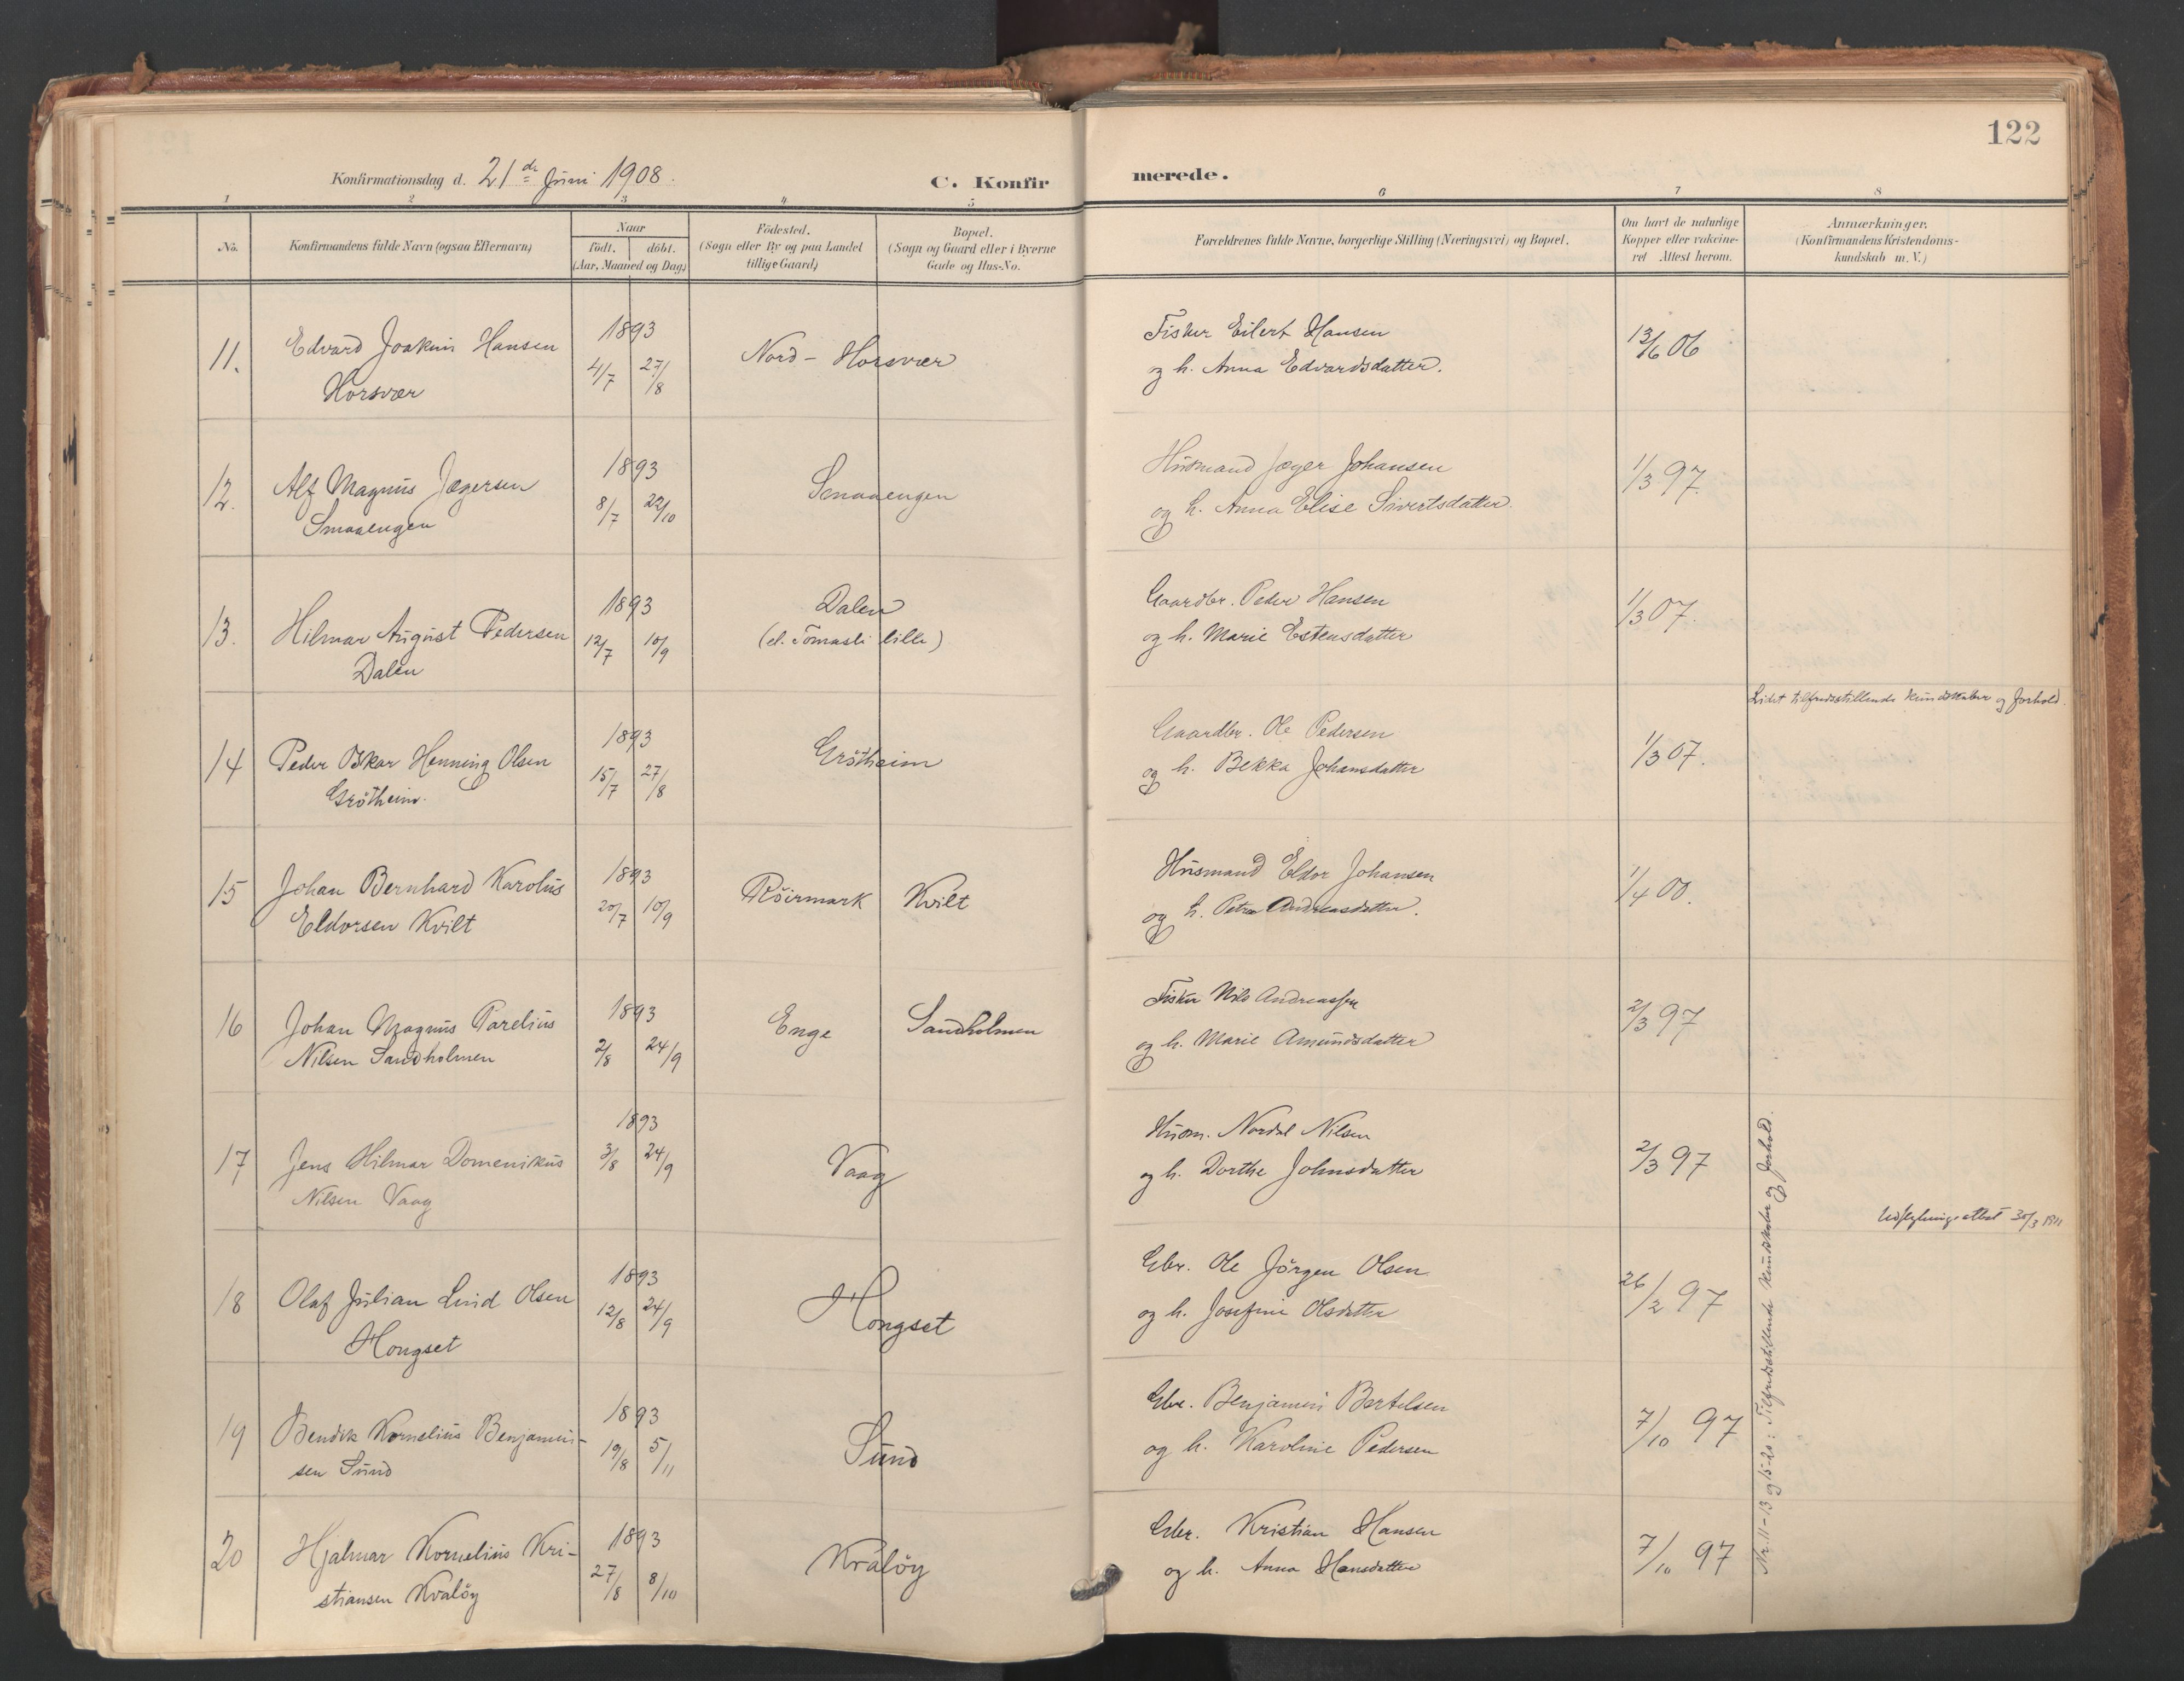 122
Konfirmationsdag d. 21de Juni 1908.
C. Konfirmerede.
1 2 3 4 5 6 7 8
No.
Konfirmandens fulde Navn (ogsaa Efternavn)
Naar
födt. döbt.
(Aar, Maaned og Dag)
Födested.
(Sogn eller By og paa Landet
tillige Gaard)
Bopæl.
(Sogn og Gaard eller i Byerne
Gade og Hus-No.
Forældrenes fulde Navne, borgerlige Stilling (Næringsvei) og Bopæl.
Om havt de naturlige
Kopper eller vakcine-
ret Attest herom.
Anmærkninger.
(Konfirmandens Kristendoms-
kundskab m. V.)
11. Edvard Joakim Hansen
Horsvær
1893
4/7 27/8
Nord-Horsvær
Fisker Eilert Hansen
og h. Anna Edvardsdatter.
13/6 06
12. Alf Magnus Jægersen
Smaaengen
1893
8/7 22/10
Smaaengen
Husmand Jæger Johansen
og h. Anna Elise Sivertsdatter
1/3 97.
13. Hilmar August Pedersen
Dalen
1893
12/7 10/9
Dalen
(el. Tomasli lille)
Gaardbr. Peder Hansen
og h. Marie Estensdatter
1/3 07.
14 Peder Oskar Henning Olsen
Grötheim.
1893
15/7 27/8
Grötheim
Gaardbr. Ole Pedersen
og h. Bekka Johansdatter
1/3 07.
Lidet tilfredsstillende kundskaber og forhold.
15 Johan Bernhard Karolus
Eldorsen Kvilt
1893
20/7 10/9
Röirmark
Kvilt
Husmand Eldor Johansen
og h. Petra Andreasdatter.
1/4 00.
16 Johan Magnus Parelius
Nilsen Sandholmen
1893
2/8 24/9
Enge
Sandholmen
Fisker Nils Andreassen
og h. Marie Amundsdatter
2/3 97
17 Jens Hilmar Domenikus
Nilsen Vaag
1893
3/8 24/9
Vaag
Husm. Nordal Nilsen
og h. Dorthe Johnsdatter
2/3 97
18 Olaf Julian Lind Olsen
Hongset
1893
12/8 24/9
Hongset
Gbr. Ole Jörgen Olsen
og h. Josefine Olsdatter
26/2 97
Udflytningsattest 30/3 1911
19 Bendik Kornelius Benjamin-
sen Sund
1893
19/8 5/11
Sund
Gbr. Benjamin Bertelsen
og h. Karoline Pedersen
7/10 97
20 Hjalmar Kornelius Kri-
stiansen Kvalöy
1893
27/8 8/10
Kvalöy
Gbr. Kristian Hansen
og h. Anna Hansdatter
7/10 97
Nr. 11-13 og 15-20: Tilfredsstillende kundskaber og forhold.